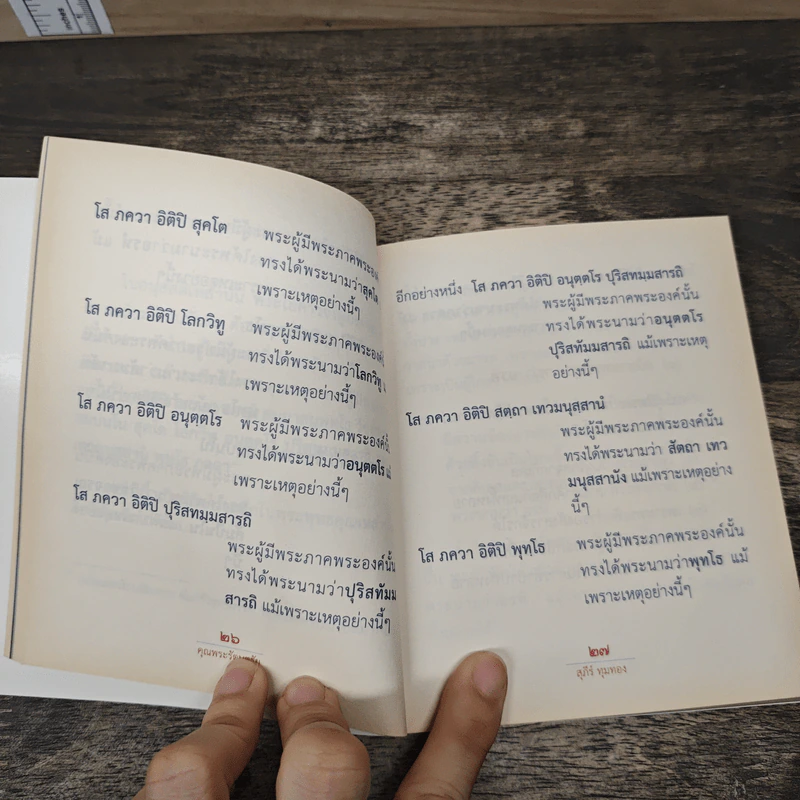 โส ภควา อิติปิ สุคโต
พระผู้มีพระภาคพระองค์
ทรงได้พระนามว่าสุคโต
เพราะเหตุอย่างนี้ๆ
โส ภควา อิติปิ โลกวิทู
พระผู้มีพระภาคพระองค์
ทรงได้พระนามว่าโลกวิทู
เพราะเหตุอย่างนี้ๆ
โส ภควา อิติปิ อนุตฺตโร
พระผู้มีพระภาคพระองค์นั้น
ทรงได้พระนามว่าอนุตตโร แม้
เพราะเหตุอย่างนี้ๆ
โส ภควา อิติปิ ปุริสทมฺมสารถิ
พระผู้มีพระภาคพระองค์นั้น
ทรงได้พระนามว่าปุริสทัมม
สารถิ แม้เพราะเหตุอย่างนี้ๆ
๒๖
คุณพระรัตนตรัย
อีกอย่างหนึ่ง โส ภควา อิติปิ อนุตฺตโร ปุริสทมฺมสารถิ
พระผู้มีพระภาคพระองค์นั้น
ทรงได้พระนามว่าอนุตตโร
ปุริสทัมมสารถิ แม้เพราะเหตุ
อย่างนี้ๆ
โส ภควา อิติปิ สตฺถา เทวมนุสฺสานํ
พระผู้มีพระภาคพระองค์นั้น
ทรงได้พระนามว่า สัตถา เทว
มนุสสานัง แม้เพราะเหตุอย่าง
นี้ๆ
โส ภควา อิติปิ พุทฺโธ
พระผู้มีพระภาคพระองค์นั้น
ทรงได้พระนามว่าพุทโธ แม้
เพราะเหตุอย่างนี้ๆ
๒๗
สุภีร์ ทุมทอง
inches